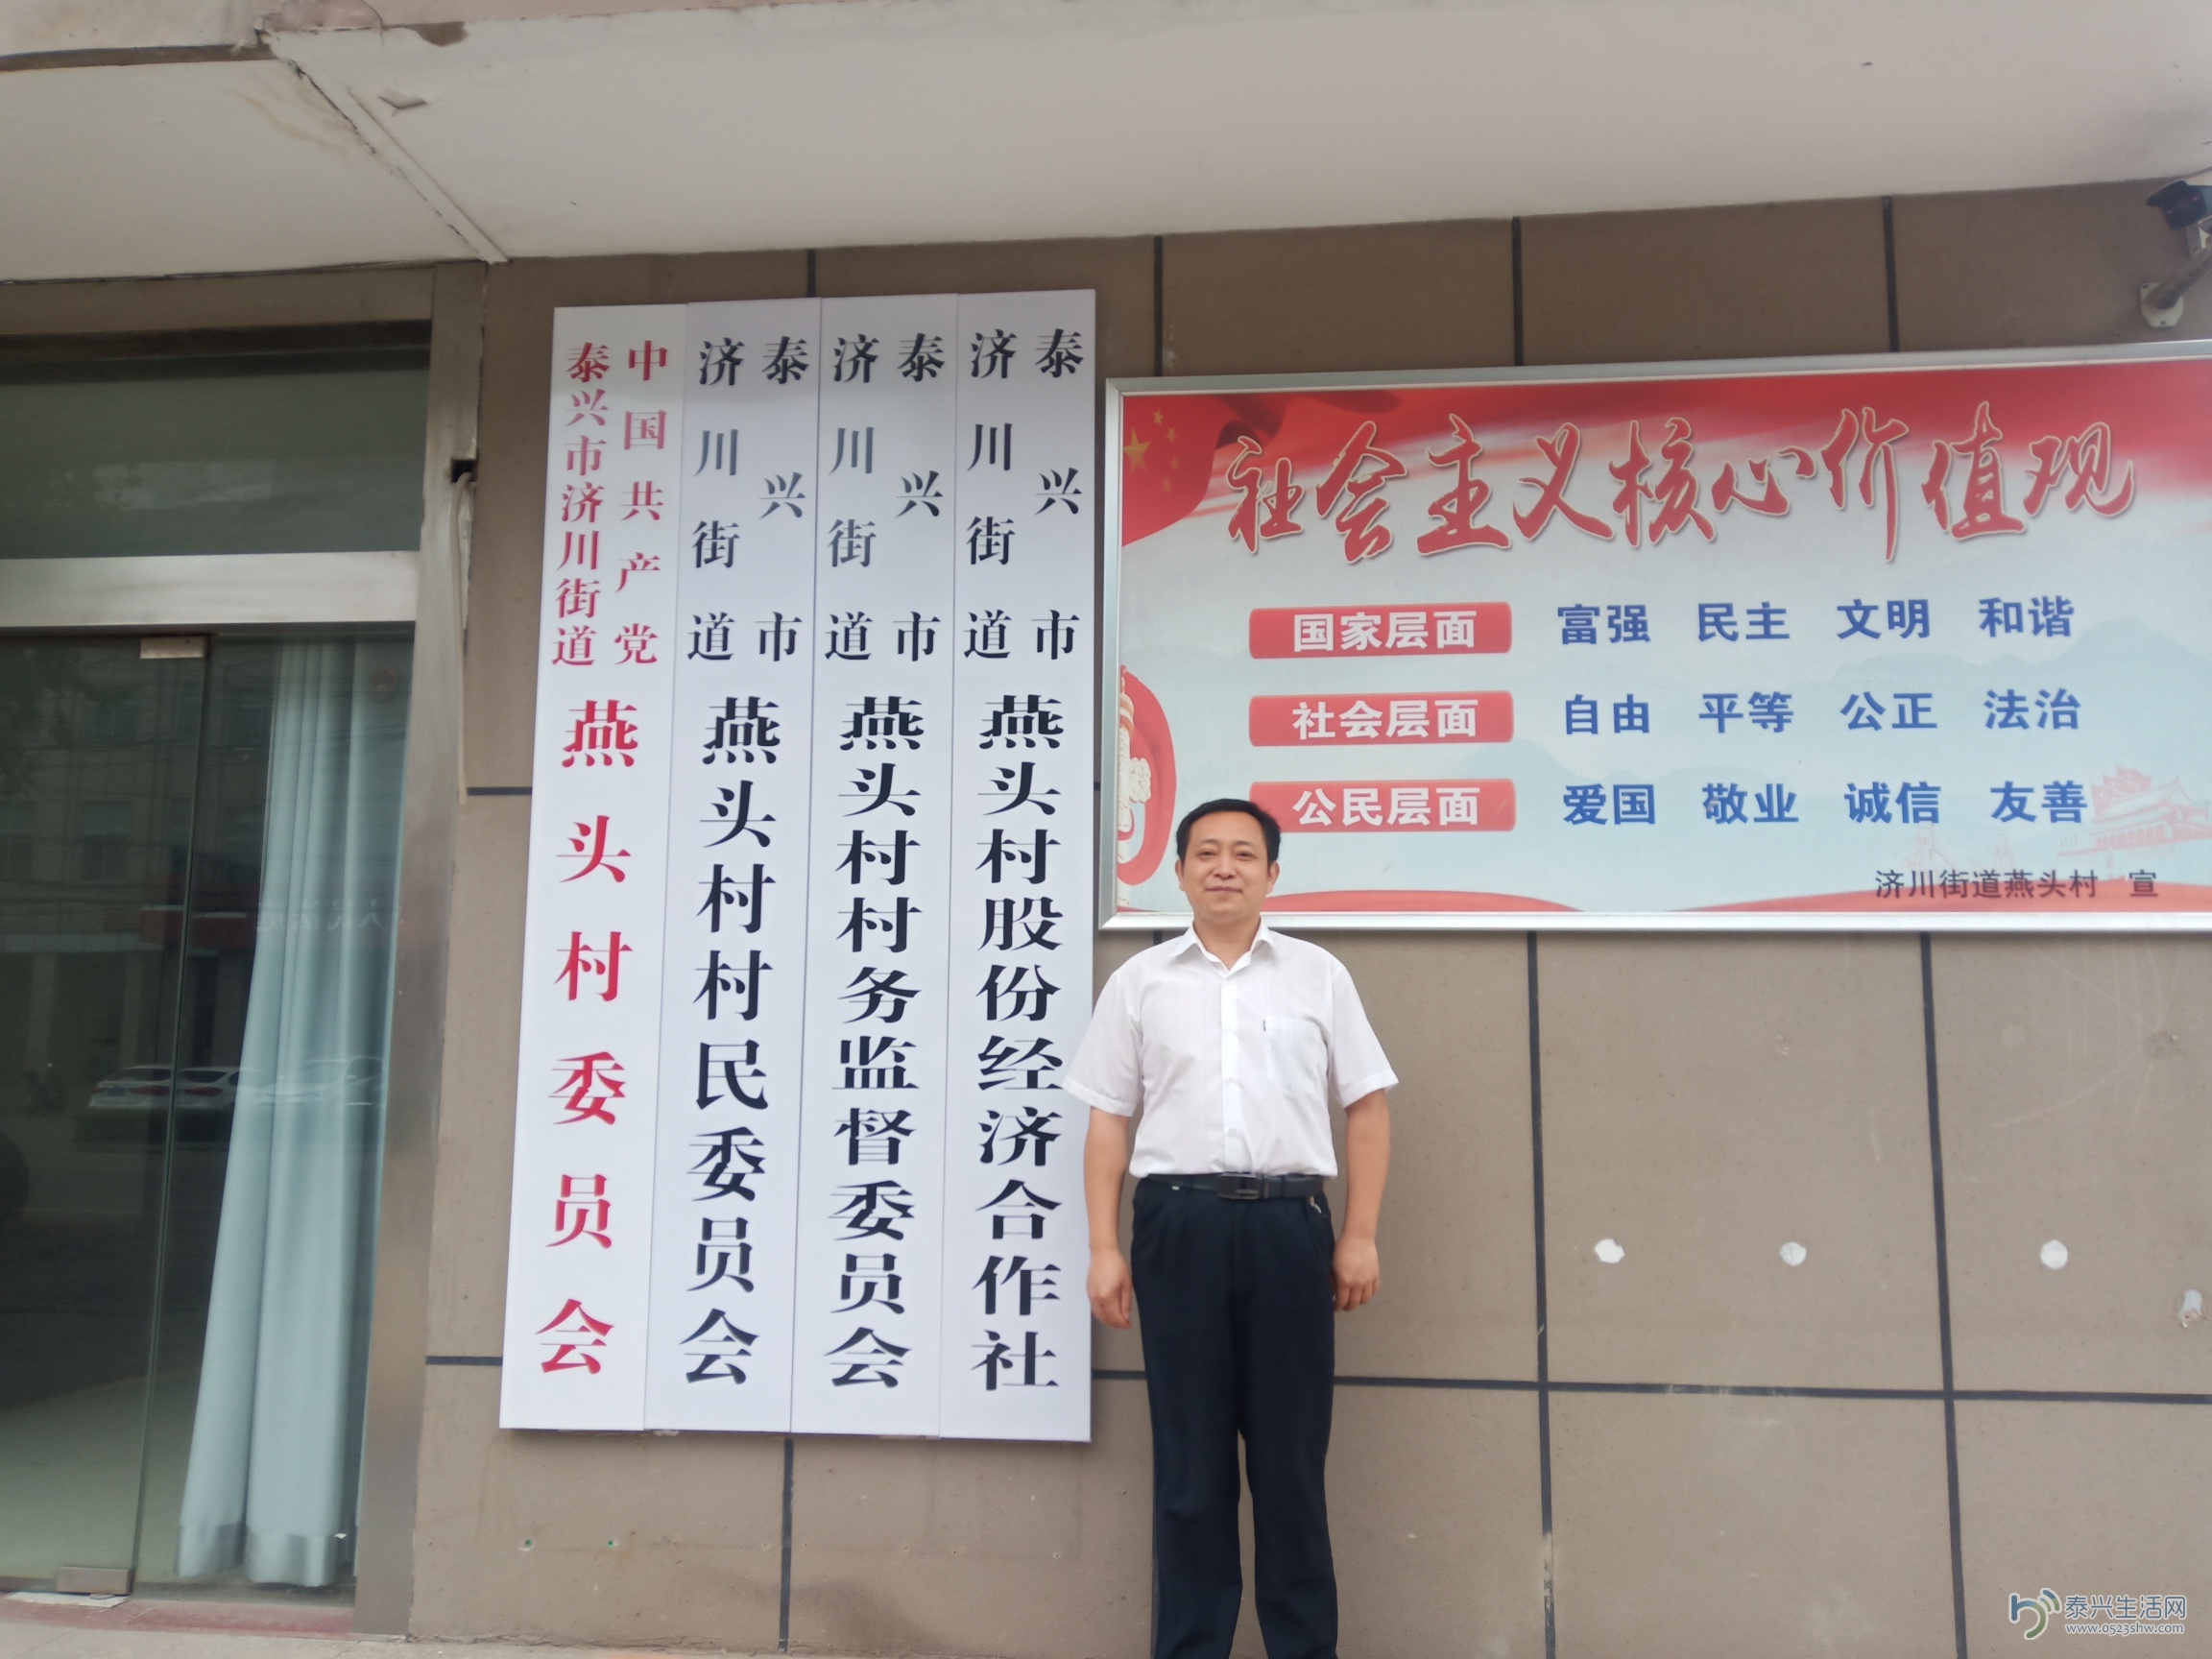 中国共产党
泰兴市济川街道
燕头村委员会
泰兴市
济川街道
燕头村村民委员会
泰兴市
济川街道
燕头村村务监督委员会
泰兴市
济川街道
燕头村股份经济合作社
社会主义核心价值观
国家层面 富强 民主 文明 和谐
社会层面 自由 平等 公正 法治
公民层面 爱国 敬业 诚信 友善
济川街道燕头村 宣
泰兴生活网
www.0523shw.com